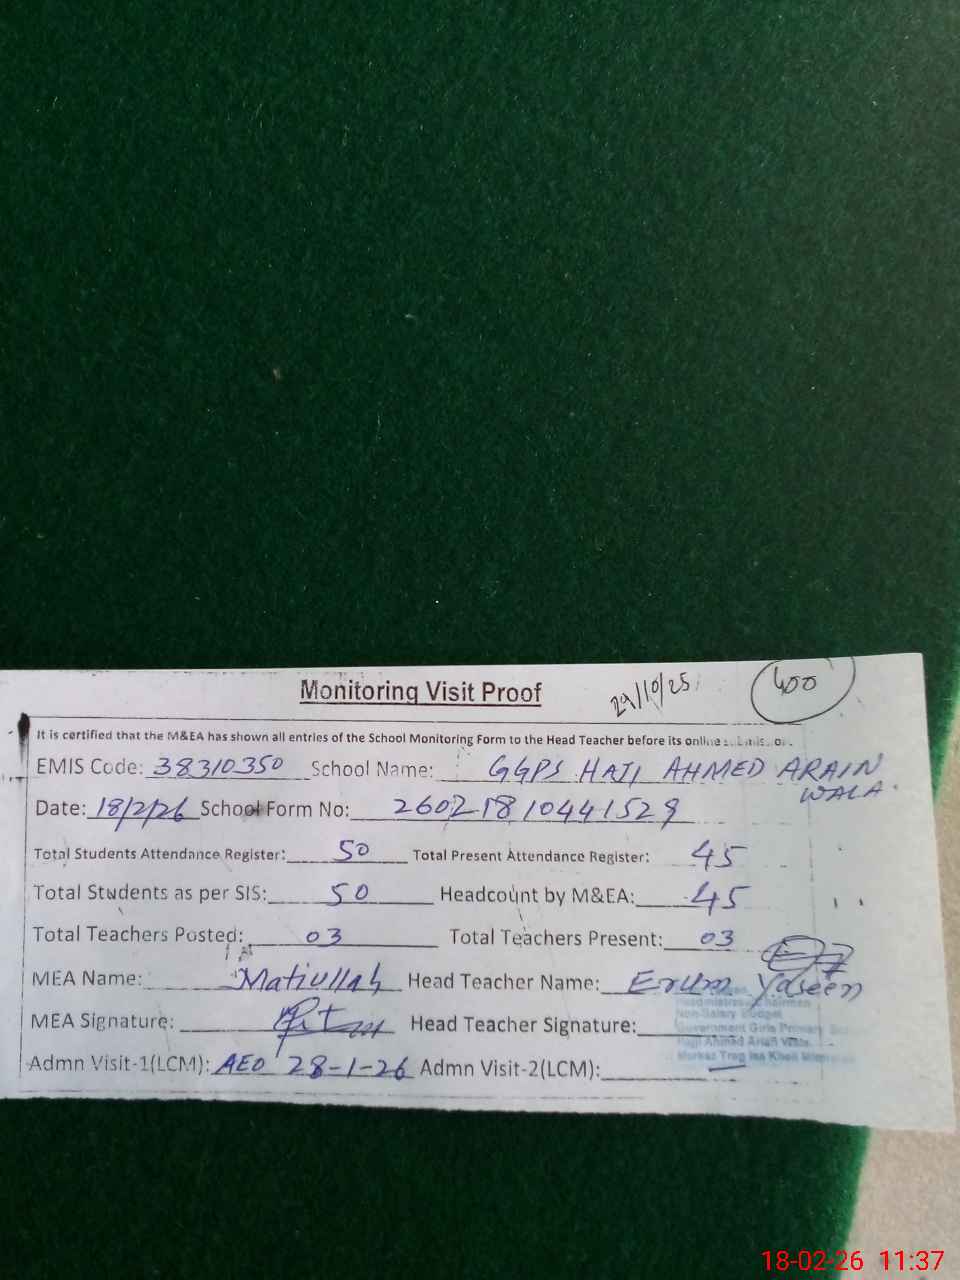 Monitoring Visit Proof
29/10/25
400
It is certified that the M&EA has shown all entries of the School Monitoring Form to the Head Teacher before its online
EMIS Code: 38310350 School Name: GGPS HAJI AHMED ARAIN
WALA
Date: 18/2/26 School Form No: 26021810441529
Total Students Attendance Register: 50 Total Present Attendance Register: 45
Total Students as per SIS: 50 Headcount by M&EA: 45
Total Teachers Posted: 03 Total Teachers Present: 03
MEA Name: Matiullah Head Teacher Name: Erum Yaseen
Headmistress
Non-Salary Budget
MEA Signature: Head Teacher Signature:
Government Girls Primary
Haji Ahmad Arian Wala
Admn Visit-1(LCM): AEO 28-1-26 Admn Visit-2(LCM):
Markaz Trag Isa Khell
18-02-26 11:37